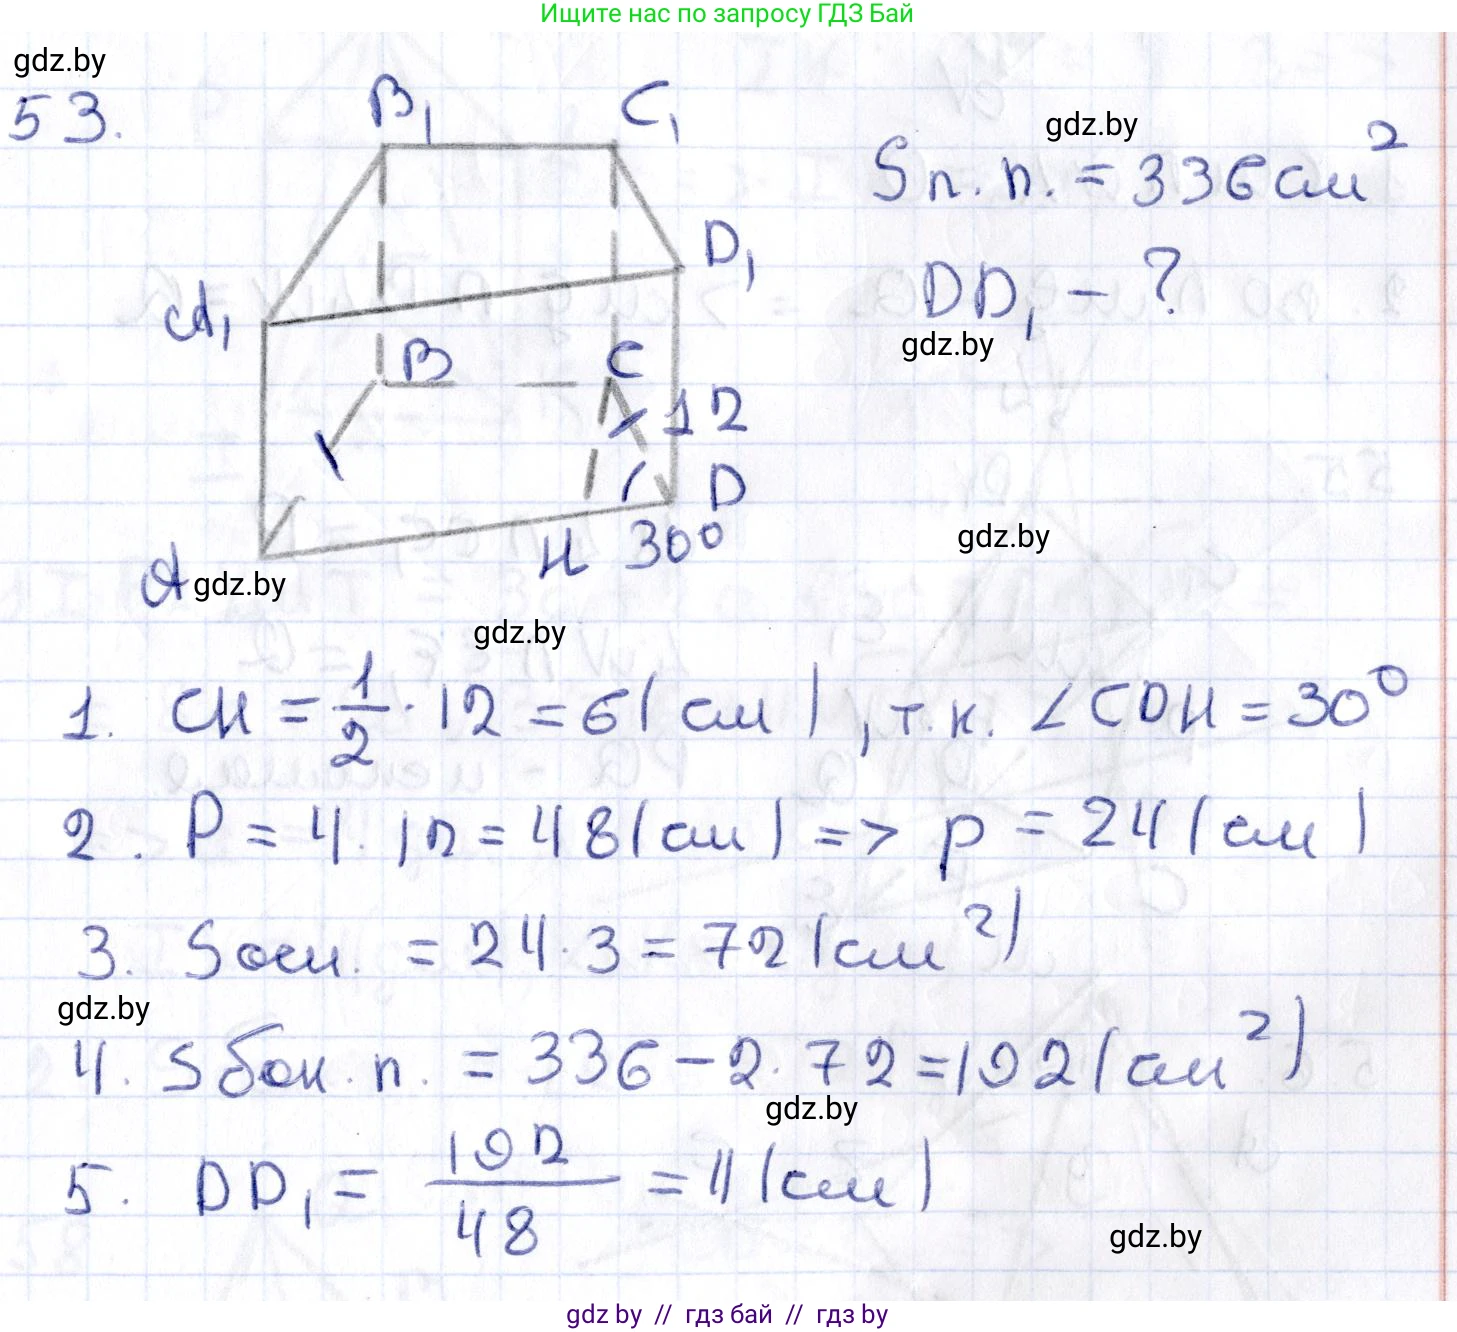 Ищите нас по запросу ГДЗ Бай
gdz.by
53.
B₁
C₁
gdz.by
Sп.п. = 336 см²
D₁
DD₁ - ?
A₁
gdz.by
B
C
12
D
gdz.by
H
30°
A
gdz.by
gdz.by
1. CH = 1/2 · 12 = 6 (см), т.к. ∠CDH = 30°
2. P = 4 · 12 = 48 (см) => p = 24 (см)
3. Sосн. = 24 · 3 = 72 (см²)
gdz.by
4. Sбок.п. = 336 - 2 · 72 = 192 (см²)
gdz.by
5. DD₁ = 192/48 = 4 (см)
gdz.by
gdz by // гдз бай // гдз by